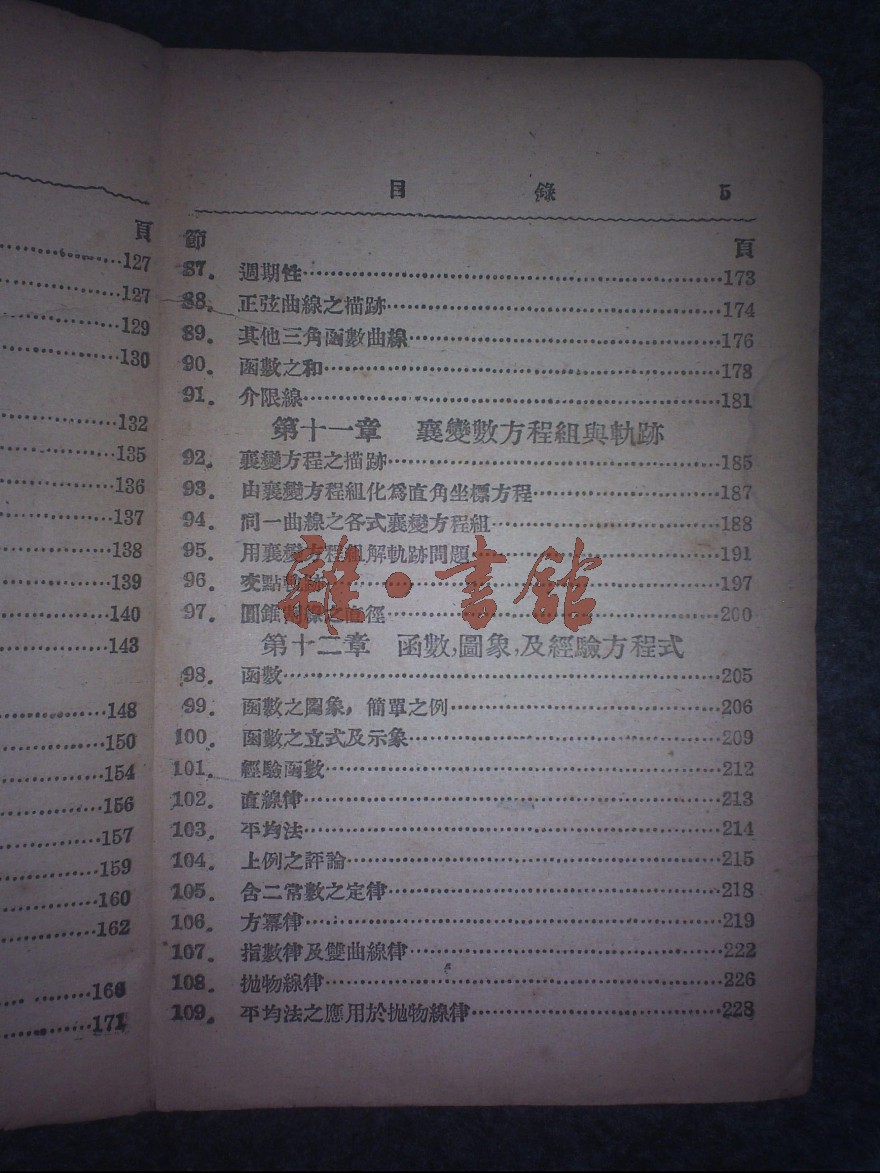 頁
127
127
129
130
132
135
136
137
138
139
140
143
148
150
154
156
157
159
160
162
166
171
目 錄 5
節 頁
87. 週期性 173
88. 正弦曲線之描跡 174
89. 其他三角函數曲線 176
90. 函數之和 178
91. 介限線 181
第十一章 襄變數方程組與軌跡
92. 襄變方程之描跡 185
93. 由襄變方程組化爲直角坐標方程 187
94. 同一曲線之各式襄變方程組 188
95. 用襄變方程組解軌跡問題 191
96. 交點軌跡 197
97. 圓錐割線之直徑 200
雜·書館
第十二章 函數,圖象,及經驗方程式
98. 函數 205
99. 函數之圖象,簡單之例 206
100. 函數之立式及示象 209
101. 經驗函數 212
102. 直線律 213
103. 平均法 214
104. 上例之評論 215
105. 含二常數之定律 218
106. 方冪律 219
107. 指數律及雙曲線律 222
108. 拋物線律 226
109. 平均法之應用於拋物線律 228